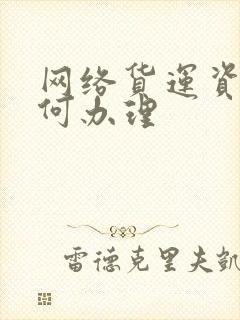 网络货運資
何办理
雷德克里夫凱